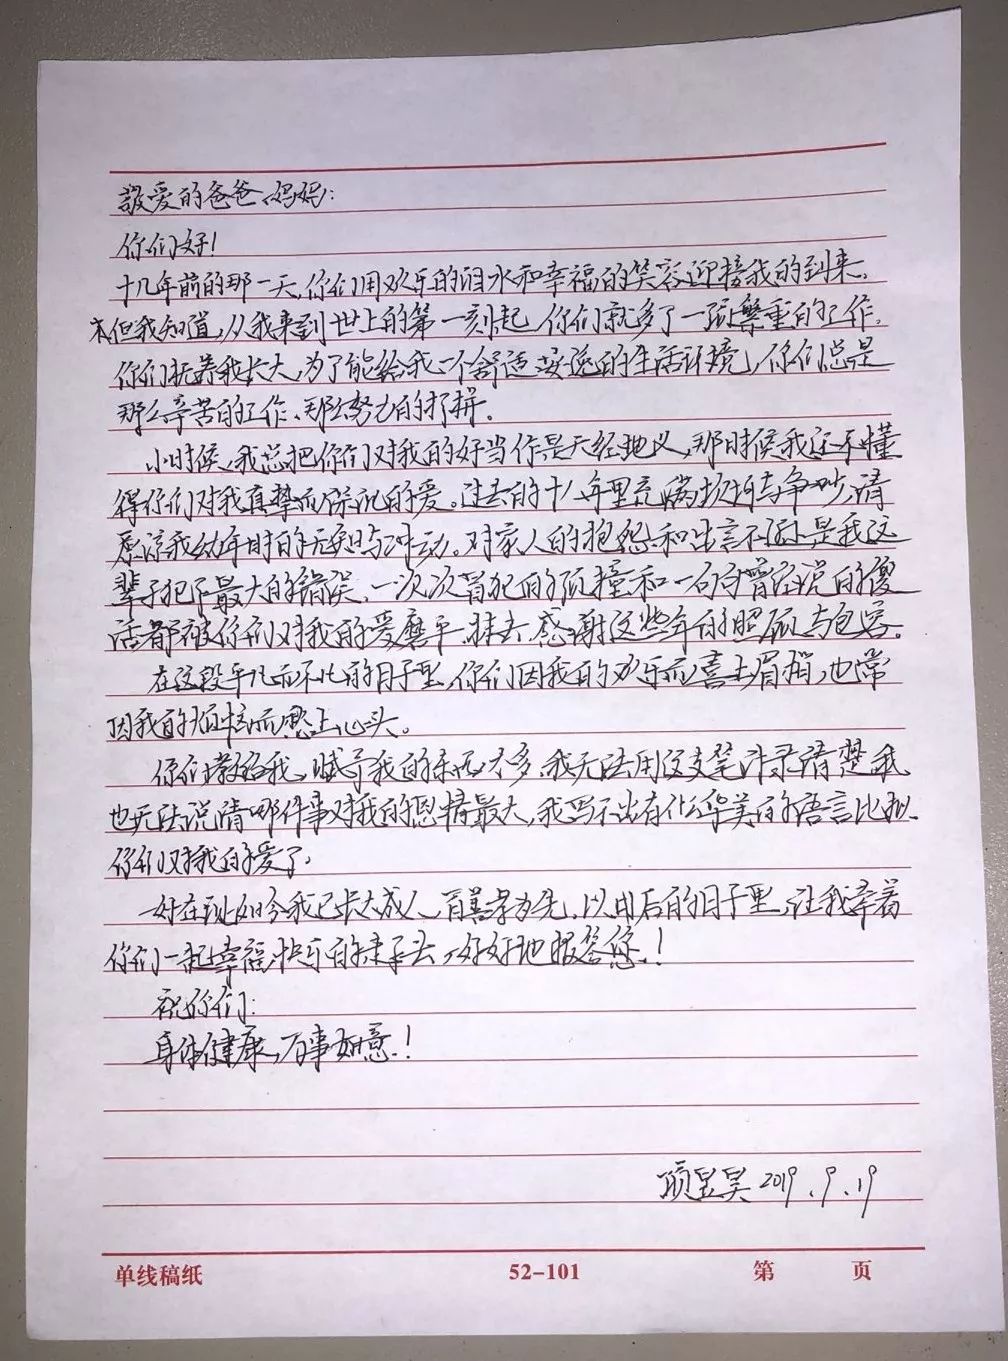 敬爱的爸爸、妈妈：
你们好！
十几年前的那一天，你们用欢乐的泪水和幸福的笑容迎接我的到来。
但我知道，从我来到世上的第一刻起，你们就多了一项繁重的工作。
你们抚养我长大，为了能给我一个舒适安逸的生活环境，你们总是
那么辛苦的工作、那么努力的打拼。
小时候，我总把你们对我的好当作是天经地义，那时候我还不懂
得你们对我真挚而深沉的爱。过去的十八年里充满坎坷与争吵，请
原谅我幼年时的无知与冲动。对家人的抱怨和出言不逊是我这
辈子犯下最大的错误，一次次冒犯的顶撞和一句句曾经说的傻
话都被你们对我的爱磨平抹去，感谢这些年的照顾与包容。
在这段平凡而不凡的日子里，你们因我的欢乐而喜上眉梢，也常
因我的烦恼而愁上心头。
你们教给我、赋予我的东西太多，我无法用这支笔记录清楚，我
也无法说清哪件事对我的恩情最大，我写不出有什么华美的语言比拟
你们对我的爱了，
好在现如今我已长大成人，百善孝为先，以后的日子里，让我牵着
你们一起幸福快乐的走下去，好好地报答您！
祝你们：
身体健康，万事如意！
项昱昊 2019.9.19
单线稿纸 52-101 第 页